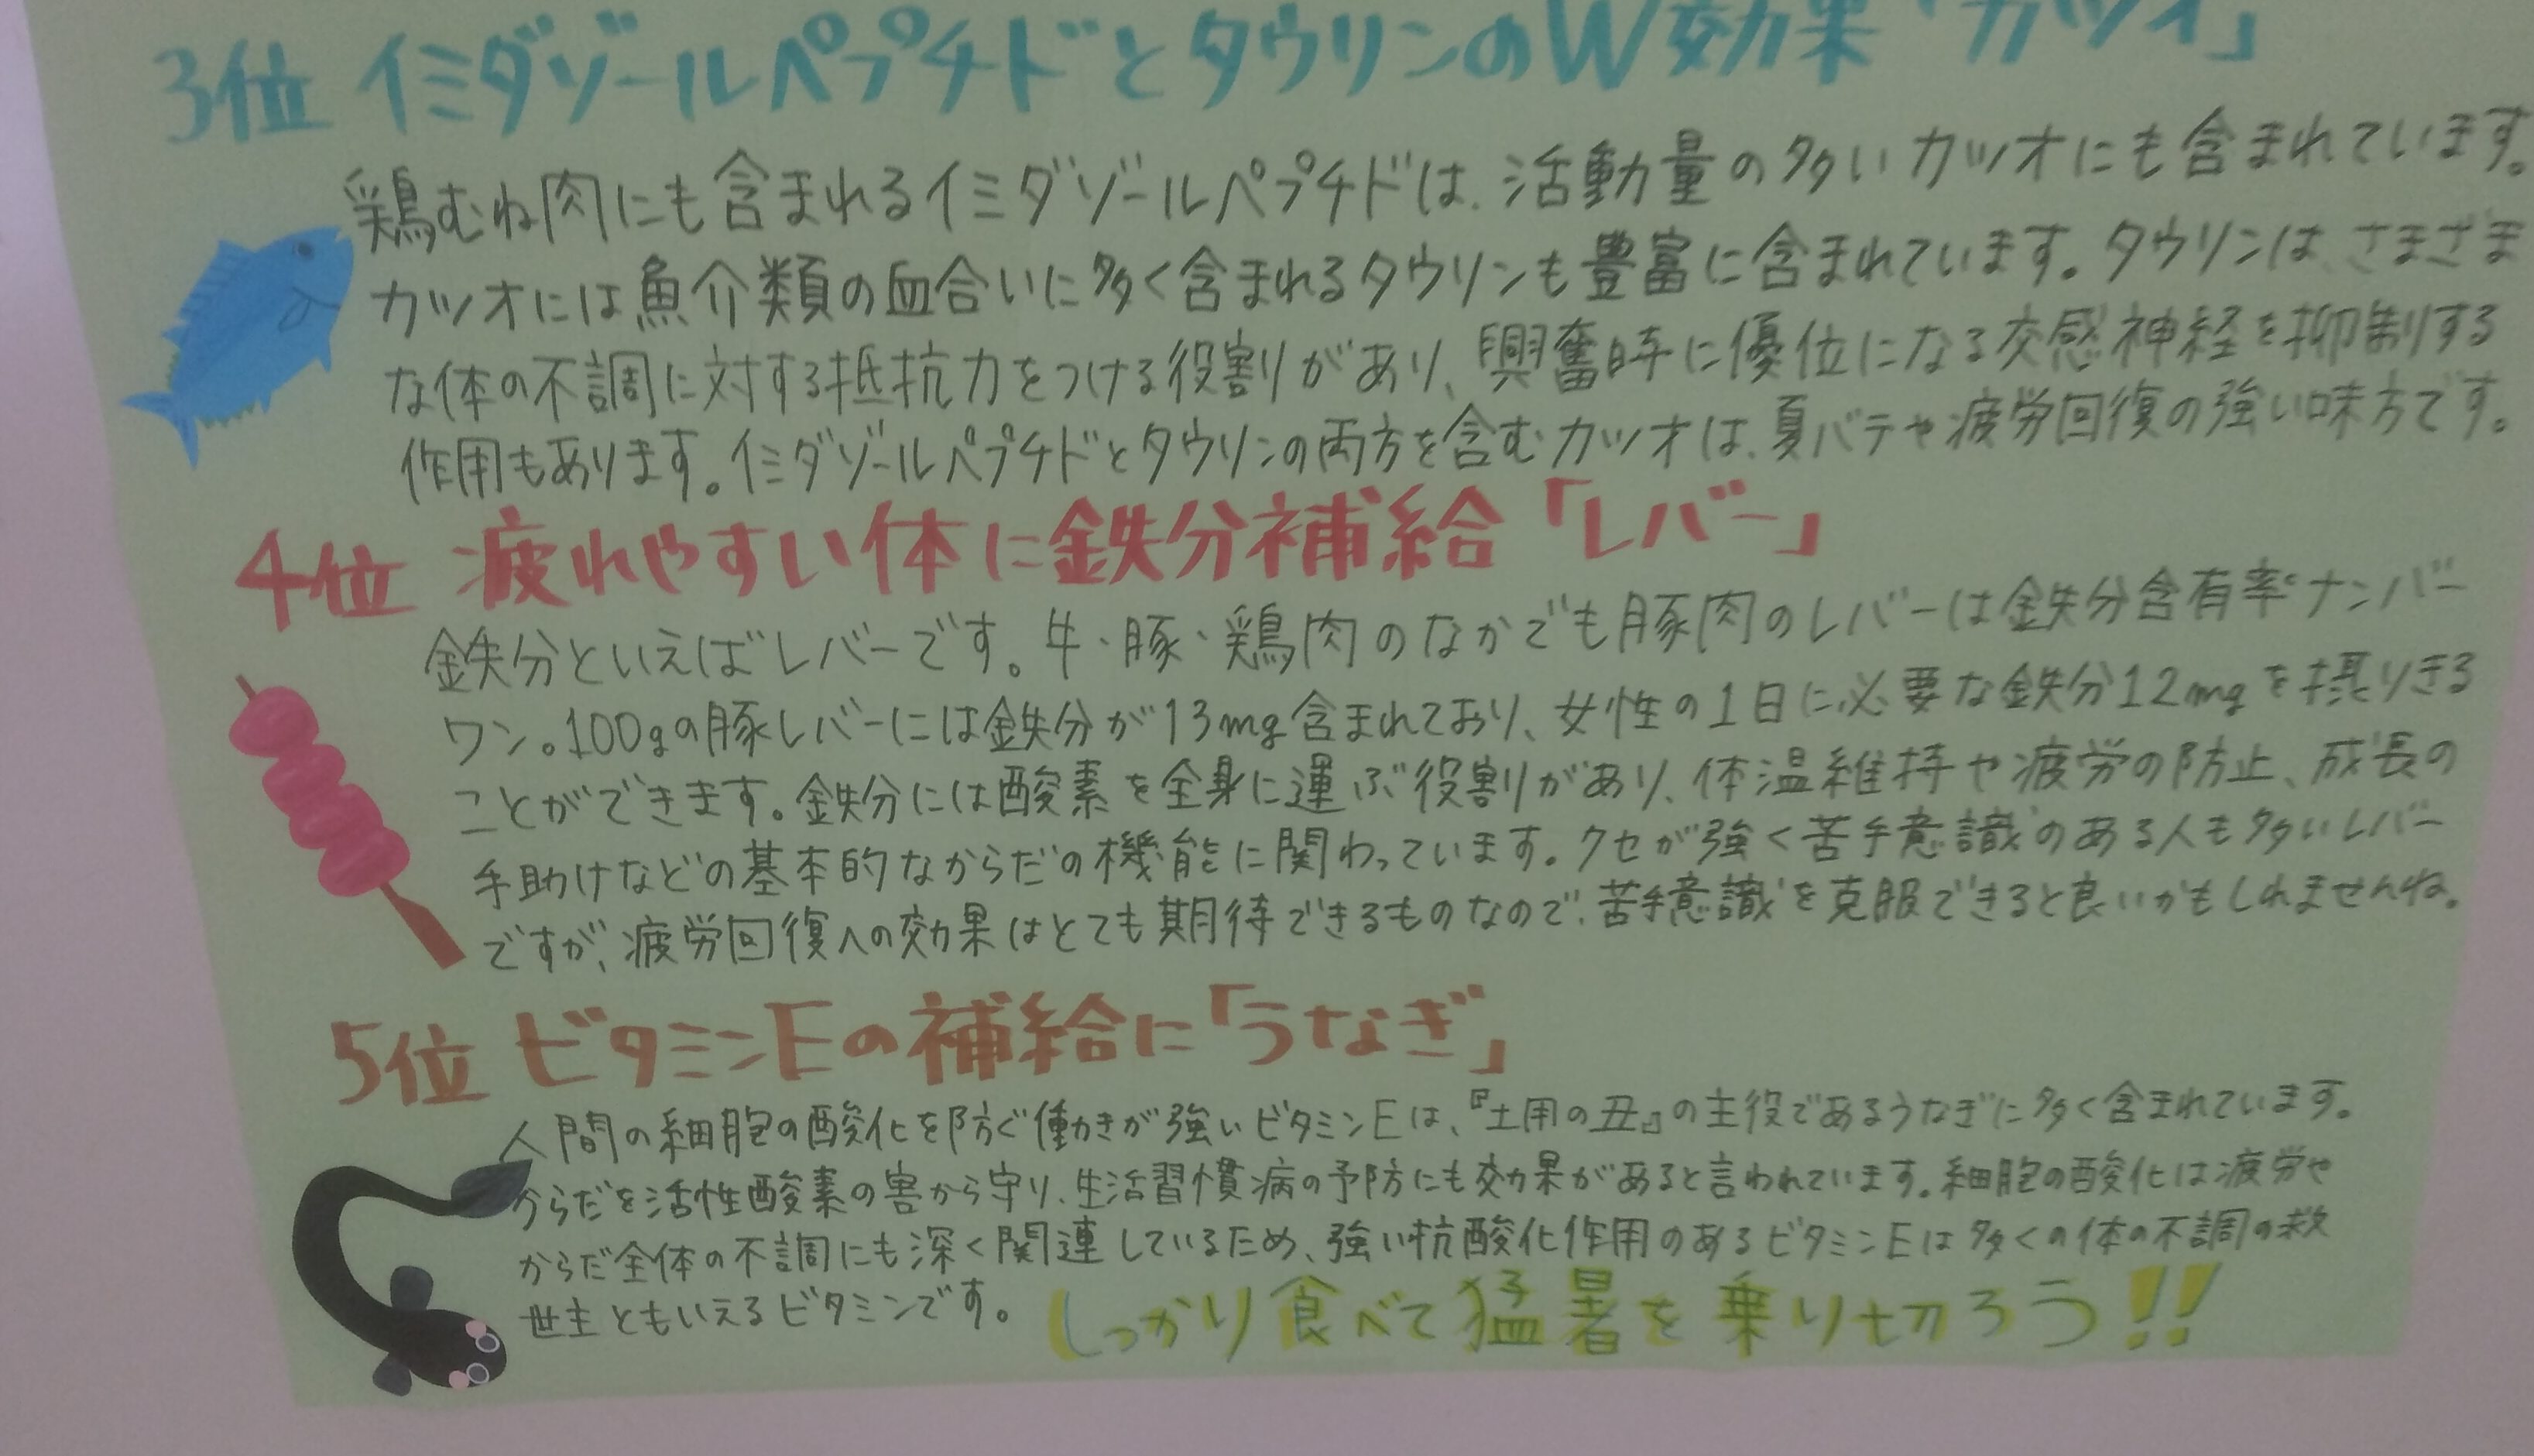 3位 イミダゾールペプチドとタウリンのW効果「カツオ」
鶏むね肉にも含まれるイミダゾールペプチドは、活動量の多いカツオにも含まれています。
カツオには魚介類の血合いに多く含まれるタウリンも豊富に含まれています。タウリンは、さまざま
な体の不調に対する抵抗力をつける役割があり、興奮時に優位になる交感神経を抑制する
作用もあります。イミダゾールペプチドとタウリンの両方を含むカツオは、夏バテや疲労回復の強い味方です。
4位 疲れやすい体に鉄分補給「レバー」
鉄分といえばレバーです。牛・豚・鶏肉のなかでも豚肉のレバーは鉄分含有率ナンバー
ワン。100gの豚レバーには鉄分が13mg含まれており、女性の1日に必要な鉄分12mgを摂りきる
ことができます。鉄分には酸素を全身に運ぶ役割があり、体温維持や疲労の防止、成長の
手助けなどの基本的なからだの機能に関わっています。クセが強く苦手意識のある人も多いレバー
ですが、疲労回復への効果はとても期待できるものなので、苦手意識を克服できると良いかもしれませんね。
5位 ビタミンEの補給に「うなぎ」
人間の細胞の酸化を防ぐ働きが強いビタミンEは、『土用の丑』の主役であるうなぎに多く含まれています。
からだを活性酸素の害から守り、生活習慣病の予防にも効果があると言われています。細胞の酸化は疲労や
からだ全体の不調にも深く関連しているため、強い抗酸化作用のあるビタミンEは多くの体の不調の救
世主ともいえるビタミンです。
しっかり食べて猛暑を乗り切ろう!!